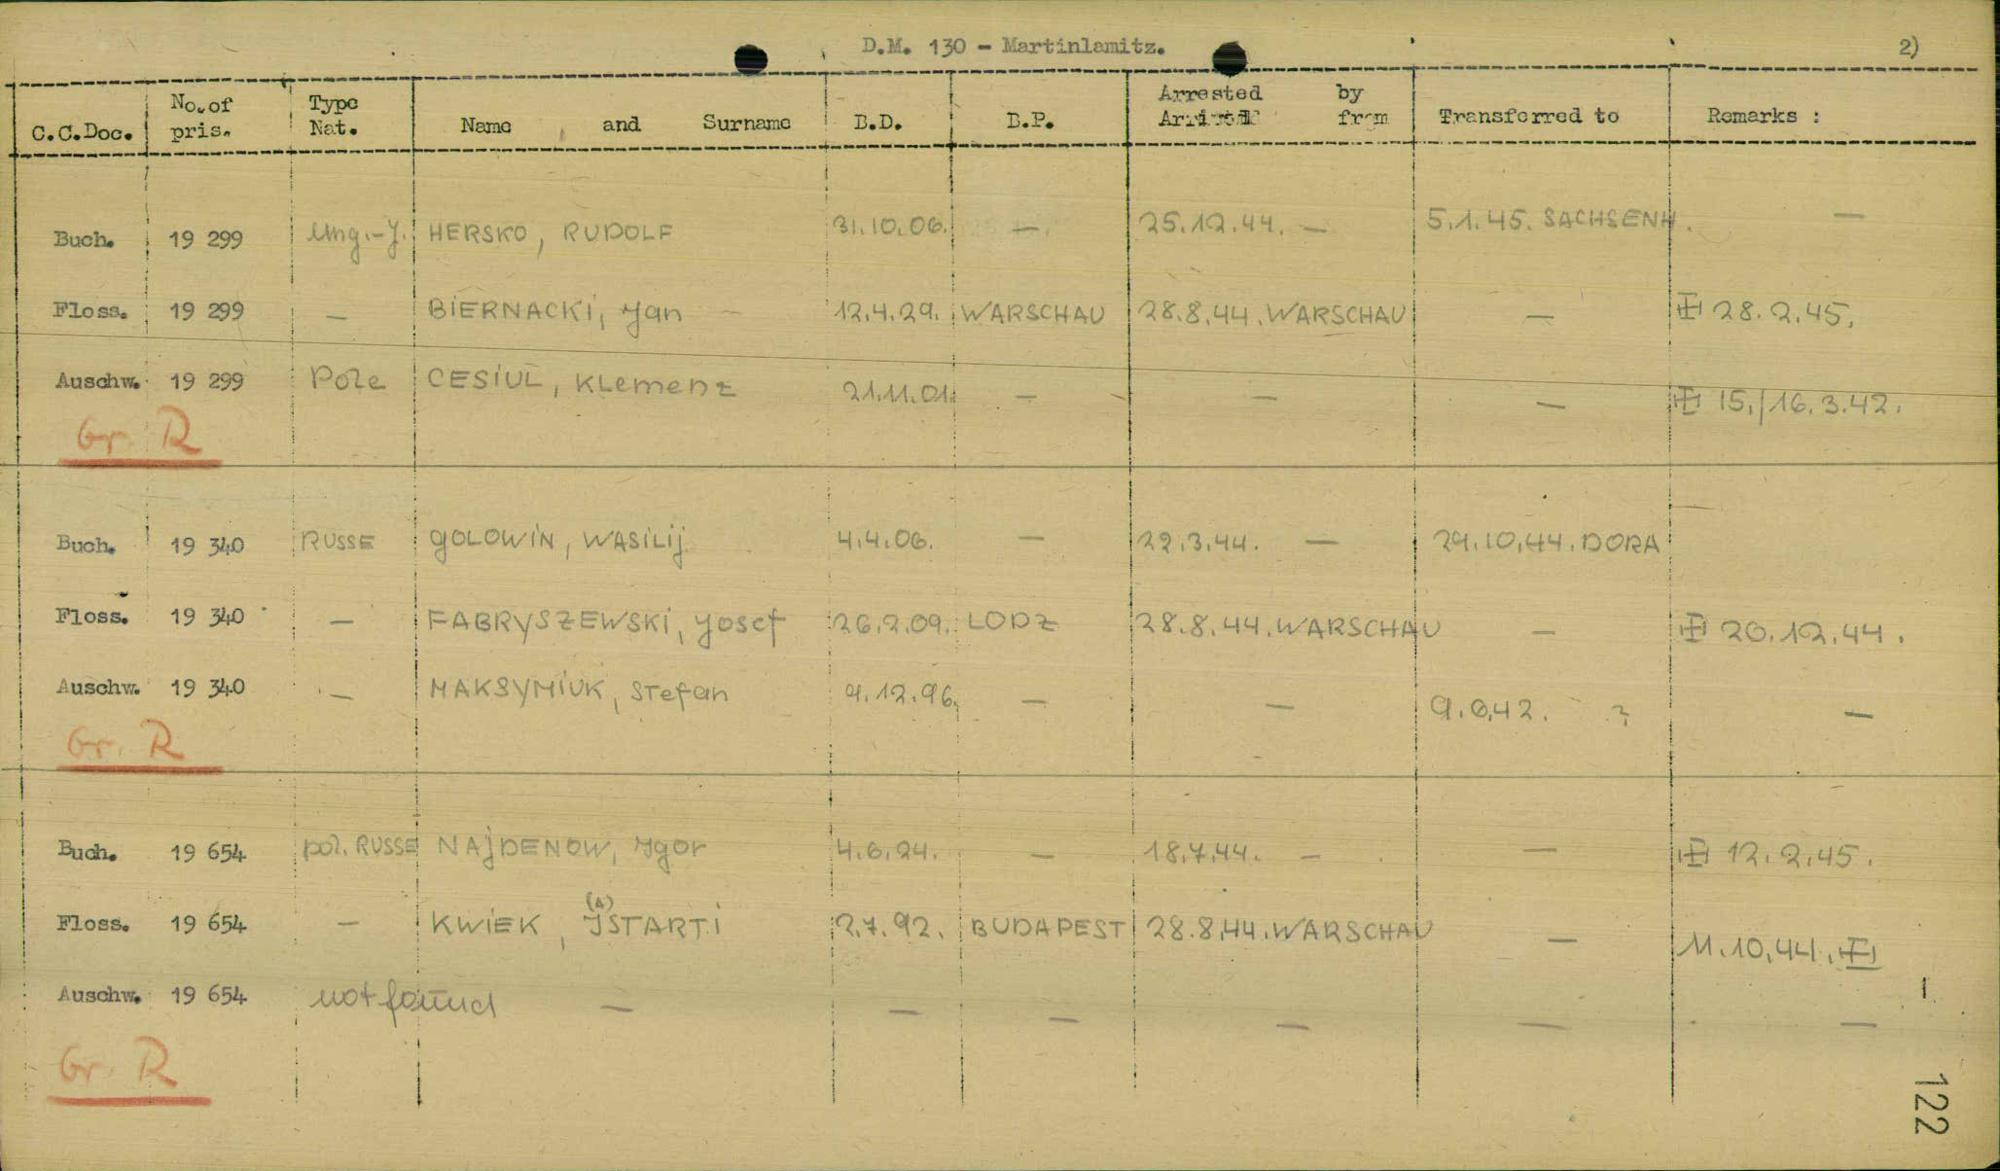 D.M. 130 - Martinlamitz. 2)
C.C.Doc. No. of pris. Type Nat. Name and Surname B.D. B.P. Arrested by Arrived from Transferred to Remarks :
Buch. 19 299 Ung.-J. HERSKO, RUDOLF 31.10.06. — 25.12.44. — 5.1.45. SACHSENH. —
Floss. 19 299 — BIERNACKI, Jan — 12.4.29. WARSCHAU 28.8.44. WARSCHAU — 28.2.45.
Auschw. 19 299 Pole CESIUL, Klemenz 21.11.01. — — — 15./16.3.42.
Gr. R
Buch. 19 340 RUSSE GOLOWIN, WASILIJ 4.4.06. — 22.3.44. — 29.10.44. DORA —
Floss. 19 340 — FABRYSZEWSKI, Josef 26.2.09. LODZ 28.8.44. WARSCHAU — 20.12.44.
Auschw. 19 340 — MAKSYMIUK, Stefan 9.12.96. — — 9.6.42. ? —
Gr. R
Buch. 19 654 pol. RUSSE NAJDENOW, Igor 4.6.24. — 18.7.44. — — 12.2.45.
Floss. 19 654 — KWIEK, (A) JSTARTI 2.7.92. BUDAPEST 28.8.44. WARSCHAU — 11.10.44.
Auschw. 19 654 not found — — — — — —
Gr. R
122